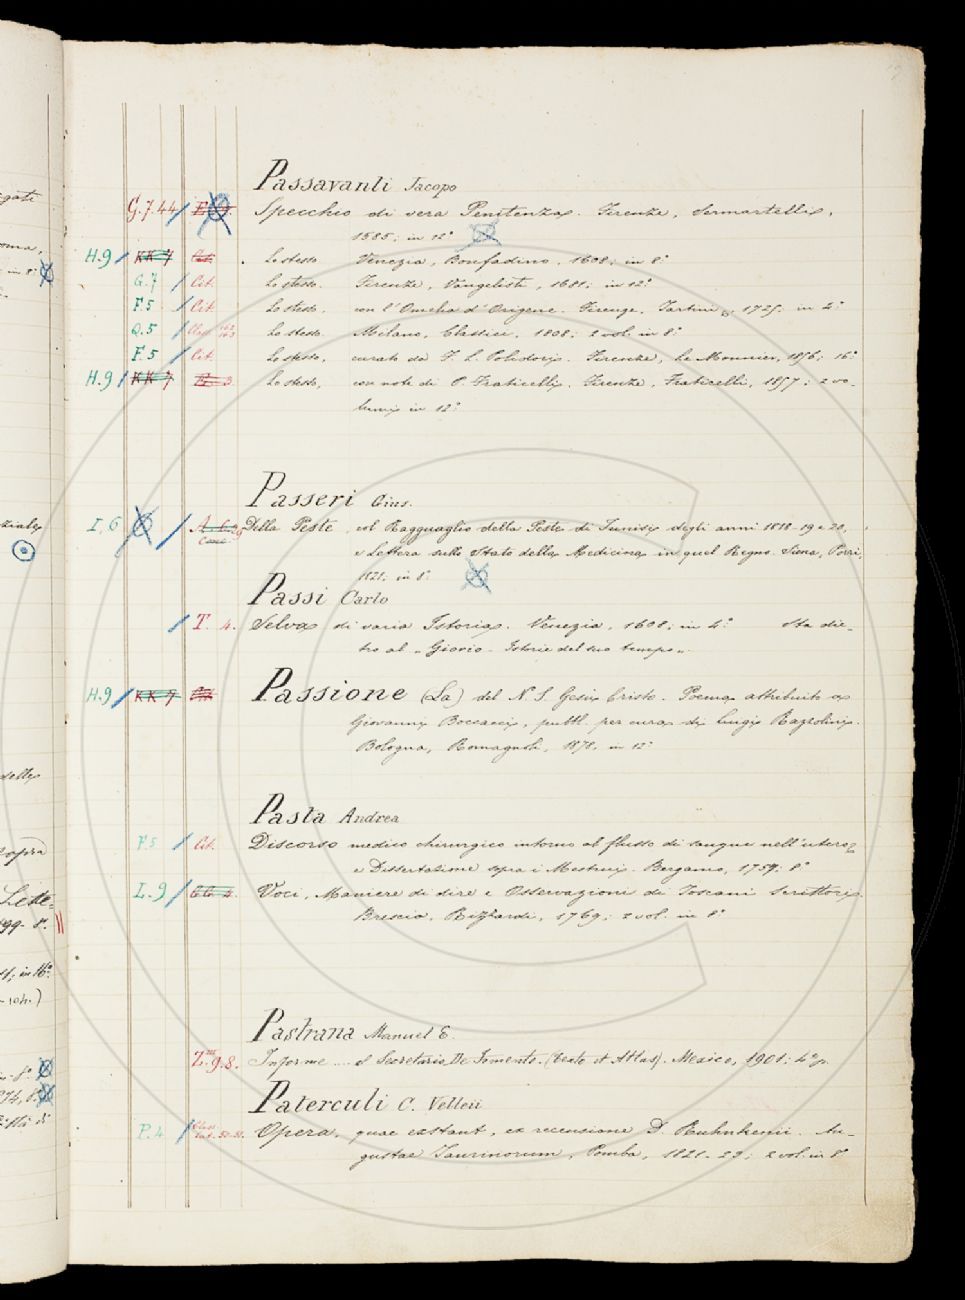 Passavanti Jacopo
G.7.44 Specchio di vera Penitenza. Firenze, Sermartelli,
1585; in 12°
H.9 KK 7 Lo stesso. Venezia, Bonfadino, 1608; in 8°
G.7 Cit. Lo stesso. Firenze, Vangelisti, 1681; in 12°
F.5 Cit. Lo stesso. con l'Omelia d'Origene. Firenze, Tartini &, 1725. in 4°
O.5 Class. 162 163 Lo stesso. Milano, Classici, 1808; 2 vol. in 8°
F.5 Cit. Lo stesso, curato da F. L. Polidori. Firenze, Le Monnier, 1856; 16°
H.9 KK 7 Lo stesso, con note di P. Fraticelli. Firenze, Fraticelli, 1857; 2 vo-
lumi in 12°
Passeri Gius.
I,6 A. 6. Della Peste, col Ragguaglio della Peste di Tunisi degli anni 1818-19 e 20,
e Lettera sullo Stato della Medicina in quel Regno. Siena, Porri,
1821; in 8°
Passi Carlo
T. 4. Selva di varia Istoria. Venezia, 1608; in 4° Sta die-
tro al "Giovio - Istorie del suo tempo".
H.9 KK 7 Passione (La) del N. S. Gesù Cristo. Poema attribuito a
Giovanni Boccacci, publl. per cura di Luigi Razzolini.
Bologna, Romagnoli, 1878, in 12°
Pasta Andrea
F.5 Cit. Discorso medico chirurgico intorno al flusso di sangue nell'utero,
e Dissertazione sopra i Mestrui. Bergamo, 1757; 8°
I.9 Voci, Maniere di dire e Osservazioni di Toscani Scrittori.
Brescia, Rizzardi, 1769; 2 vol. in 8°
Pastrana Manuel E.
Z.III 9.8. Informe .... el Secretario De Fomento. (texto et Atlas). Mexico, 1901; 4° p.
Paterculi C. Velleii
P.4 Class. Opera, quae extant, ex recensione D. Ruhnkenii. Au-
gustae Taurinorum, Pomba, 1821-29; 2 vol. in 8°